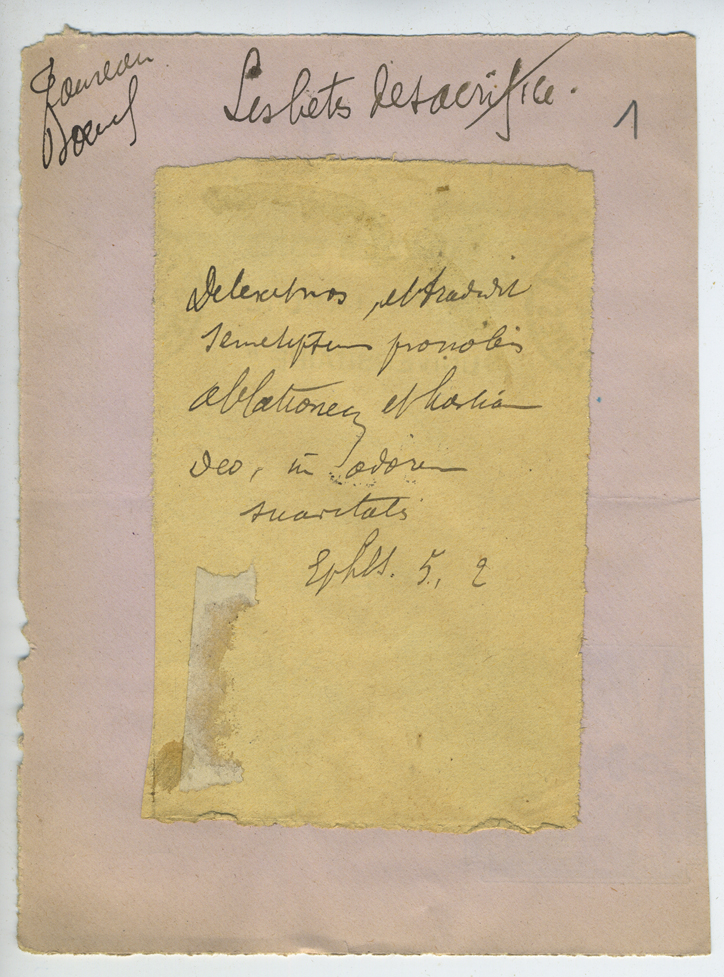 Taureau
Boeuf
Les bêtes de sacrifice.
1
Dilexit nos, et tradidit
semetipsum pro nobis
oblationem et hostiam
Deo, in odorem
suavitatis
Ephes. 5, 2